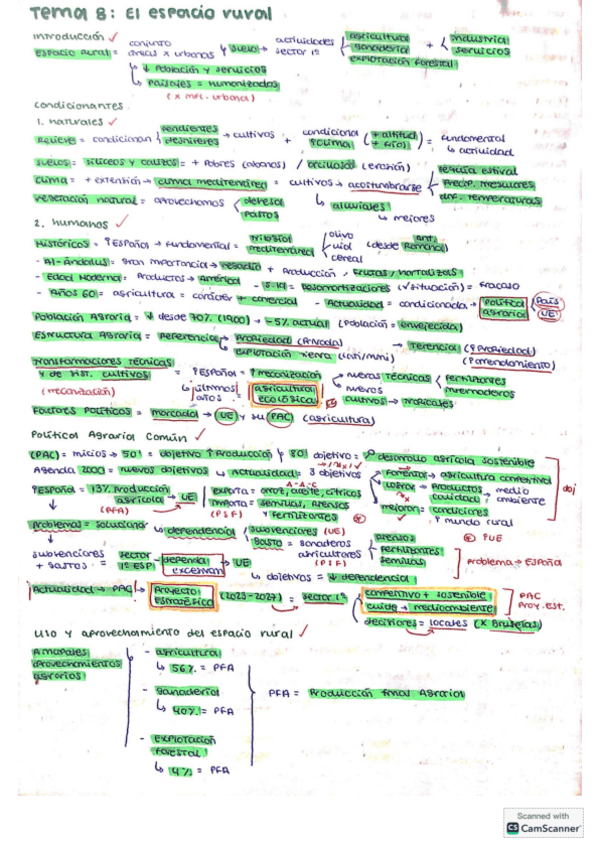 Tema 8: El espacio rural
Introducción ✓
Espacio Rural = conjunto áreas x urbanas y suelo → actividades sector 1º agricultura ganadería explotación forestal + industria servicios
↳ ↓ Población y servicios
↳ Paisajes = humanizados
(x infl. urbana)
Condicionantes
1. naturales ✓
Relieve = condicionan pendientes desniveles → cultivos + condiciona clima (+ altitud + frío) = fundamental
↳ actividad
Suelos = silíceos y calizos = + pobres (abonos) / arcillosos (erosión)
Clima = + extensión → clima mediterráneo = cultivos → acostumbrarse sequía estival precip. irregulares dif. temperaturas
↳ aluviales
↳ mejores
Vegetación natural = aprovechamos dehesa pastos
2. humanos ✓
Históricos = España → fundamental = trilogía mediterránea olivo vid cereal (desde Ant. Romana)
- Al-Andalus = gran importancia → regadío + producción, frutas/hortalizas
- Edad Moderna = Productos → América - S.19 = Desamortizaciones = fracaso
- Años 60 = agricultura = carácter + comercial - Actualidad = condicionada → política agraria País UE
Población Agraria = ↓ desde 70% (1900) → -5% actual (Población = envejecida)
Estructura Agraria = Referencia Propiedad (Privada) → Tenencia (Propiedad)
explotación tierra (Arrendamiento)
Transformaciones técnicas y de hist. cultivos = España = ↑ mecanización → nuevas técnicas fertilizantes invernaderos
(mecanización) ↳ últimos años: agricultura ecológica nuevos cultivos → tropicales
Factores políticos = mercado → UE y su PAC (agricultura)
Política Agraria Común ✓
(PAC) = inicios → 50! = objetivo ↑ Producción y 80! objetivo = desarrollo agrícola sostenible
Agenda 2000 = nuevos objetivos ↳ Actualidad = 3 objetivos Fomentar → agricultura competitiva
lograr → Productos calidad medio ambiente
mejorar condiciones y mundo rural
España = 13% Producción agrícola → UE exporta = aceite, cítricos
(PFA) importa = semillas, piensos y fertilizantes
(P S F)
Problemas = solucionar dependencia subvenciones (UE)
gasto = ganaderos agricultores (P S F) piensos fertilizantes semillas
Problema → España
subvenciones + gastos = sector 1º ESP. → depende → UE
↳ objetivos = ↓ dependencia
Actualidad → PAC → Proyecto estratégico (2023-2027) → sector 1º competitivo + sostenible cuide → medioambiente
PAC Proy. est.
decisiones = locales (x Bruselas)
Uso y aprovechamiento del espacio rural ✓
Principales aprovechamientos agrarios
- agricultura
↳ 56% = PFA
- ganadería
↳ 40% = PFA
- explotación forestal
↳ 4% = PFA
PFA = Producción final Agraria
Scanned with
CS CamScanner